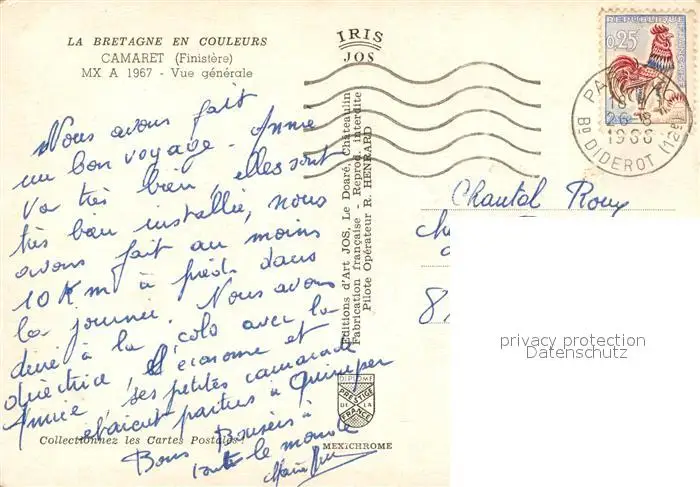 LA BRETAGNE EN COULEURS
CAMARET (Finistère)
MX A 1967 - Vue générale
Nous avons fait
un bon voyage. Annie
va très bien, elles sont
très bien installée, nous
avons fait au moins
10 Km à pieds dans
la journée. Nous avons
diné à la colo avec la
directrice, l'économe et
Annie, ses petites camarade
étaient parties à Quimper
Bons Baisers à
toute le monde
Collectionnez les Cartes Postales
IRIS
JOS
Editions d'Art JOS, Le Doaré, Châteaulin
Fabrication française - Reprod. interdite
Pilote Opérateur R. HENRARD
DIPLOME
PRESTIGE
DE LA
FRANCE
MEXICHROME
REPUBLIQUE
0,25
PA
18
26
1966
Bd DIDEROT (12e)
Chantal Roux
8
privacy protection
Datenschutz